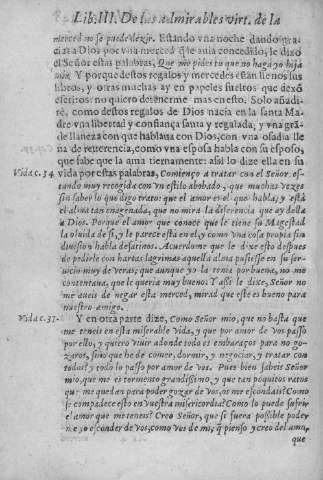 Lib. III. De las admirables virt. de la
merced no se puede dezir. Estando vna noche dando gra-
cias a Dios por vna merced q̃ le auia concedido, le dixo
el Señor estas palabras, Que me pides tu que no haga yo hija
mia. Y porque destos regalos y mercedes están llenos sus
libros, y otras muchas ay en papeles sueltos que dexó
escritos: no quiero detenerme mas en esto. Solo añadi-
ré, como destos regalos de Dios nacia en la santa Ma-
dre vna libertad y confiança santa y regalada, y vna grã-
de llaneza con que hablaua con Dios, con vna osadia lle-
na de reuerencia, como vna esposa habla con su esposo,
que sabe que la ama tiernamente: assi lo dize ella en su
Vida c. 34. vida por estas palabras, Comienço a tratar con el Señor, es-
tando muy recogida con vn estilo abobado, que muchas vezes
sin saber lo que digo trato: que el amor es el que habla, y està
el alma tan enagenada, que no mira la diferencia que ay della
a Dios. Porque el amor que conoce que le tiene su Magestad
la oluida de si, y le parece està en el, y como vna cosa propia sin
diuision habla desatinos. Acuerdome que le dixe esto despues
de pedirle con hartas lagrimas aquella alma pusiesse en su ser-
uicio muy de veras; que aunque yo la tenia por buena, no me
contentaua, que le queria muy bueno. Y assi le dixe, Señor no
me aueis de negar esta merced, mirad que este es bueno para
nuestro amigo.
Vida c. 37. Y en otra parte dize, Como Señor mio, que no basta que
me teneis en esta miserable vida, y que por amor de vos passo
por ello, y quiero viuir adonde todo es embaraços para no go-
zaros, sino que he de comer, dormir, y negociar, y tratar con
todos? y todo lo passo por amor de vos. Pues bien sabeis Señor
mio, que me es tormento grandissimo, y que tan poquitos ratos
que me quedan para poder gozar de vos, os me escondais? Como
se compadece esto en vuestra misericordia? Como lo puede sufrir
el amor que me teneis? Creo Señor, que si fuera possible poder-
me yo esconder de vos, como vos de mi, q̃ pienso y creo del amor,
que